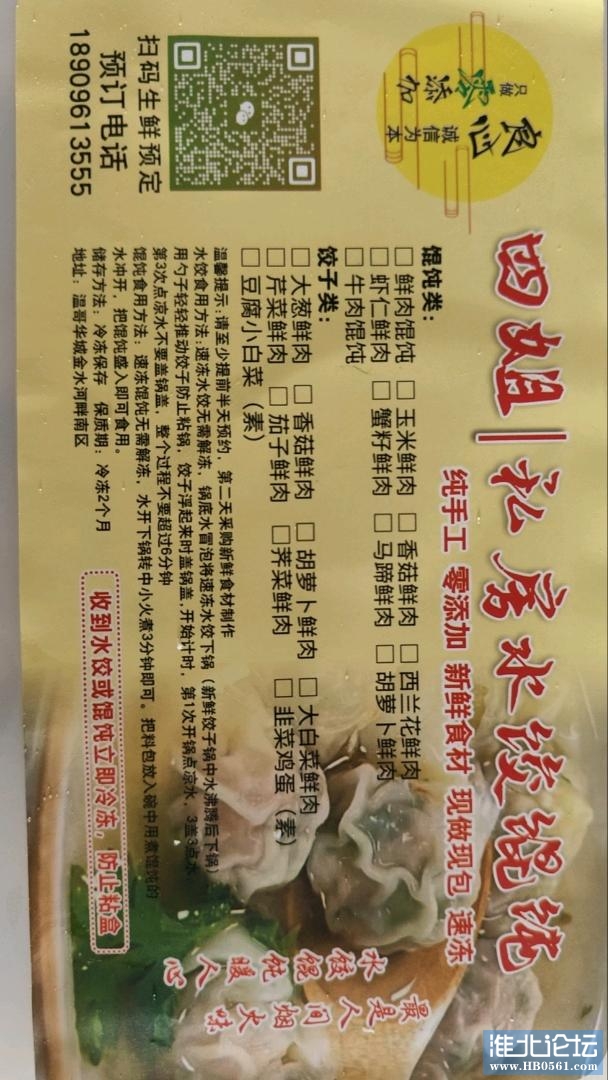 良心
诚信为本
只做
零添加
四姐|私房水饺馄饨
纯手工 零添加 新鲜食材 现做现包 速冻
馄饨类：
□鲜肉馄饨 □玉米鲜肉 □香菇鲜肉 □西兰花鲜肉
□虾仁鲜肉 □蟹籽鲜肉 □马蹄鲜肉 □胡萝卜鲜肉
□牛肉馄饨
饺子类：
□大葱鲜肉 □香菇鲜肉 □胡萝卜鲜肉 □大白菜鲜肉
□芹菜鲜肉 □茄子鲜肉 □荠菜鲜肉 □韭菜鸡蛋（素）
□豆腐小白菜（素）
温馨提示：请至少提前半天预约，第二天采购新鲜食材制作
水饺食用方法：速冻水饺无需解冻，锅底水冒泡将速冻水饺下锅（新鲜饺子锅中水沸腾后下锅）
用勺子轻轻推动饺子防止粘锅，饺子浮起来时盖锅盖，开始计时，第1次开锅点凉水，3盖3点水，
第3次点凉水不要盖锅盖，整个过程不要超过6分钟
馄饨食用方法：速冻馄饨无需解冻，水开下锅转中小火煮3分钟即可。把料包放入碗中用煮馄饨的
水冲开，把馄饨盛入即可食用。
储存方法：冷冻保存 保质期：冷冻2个月
地址：温哥华城金水河畔南区
收到水饺或馄饨立即冷冻，防止粘盒
扫码生鲜预定
预订电话
18909613555
最是人间烟火味
水饺馄饨暖人心
淮北论坛
www.HB0561.com